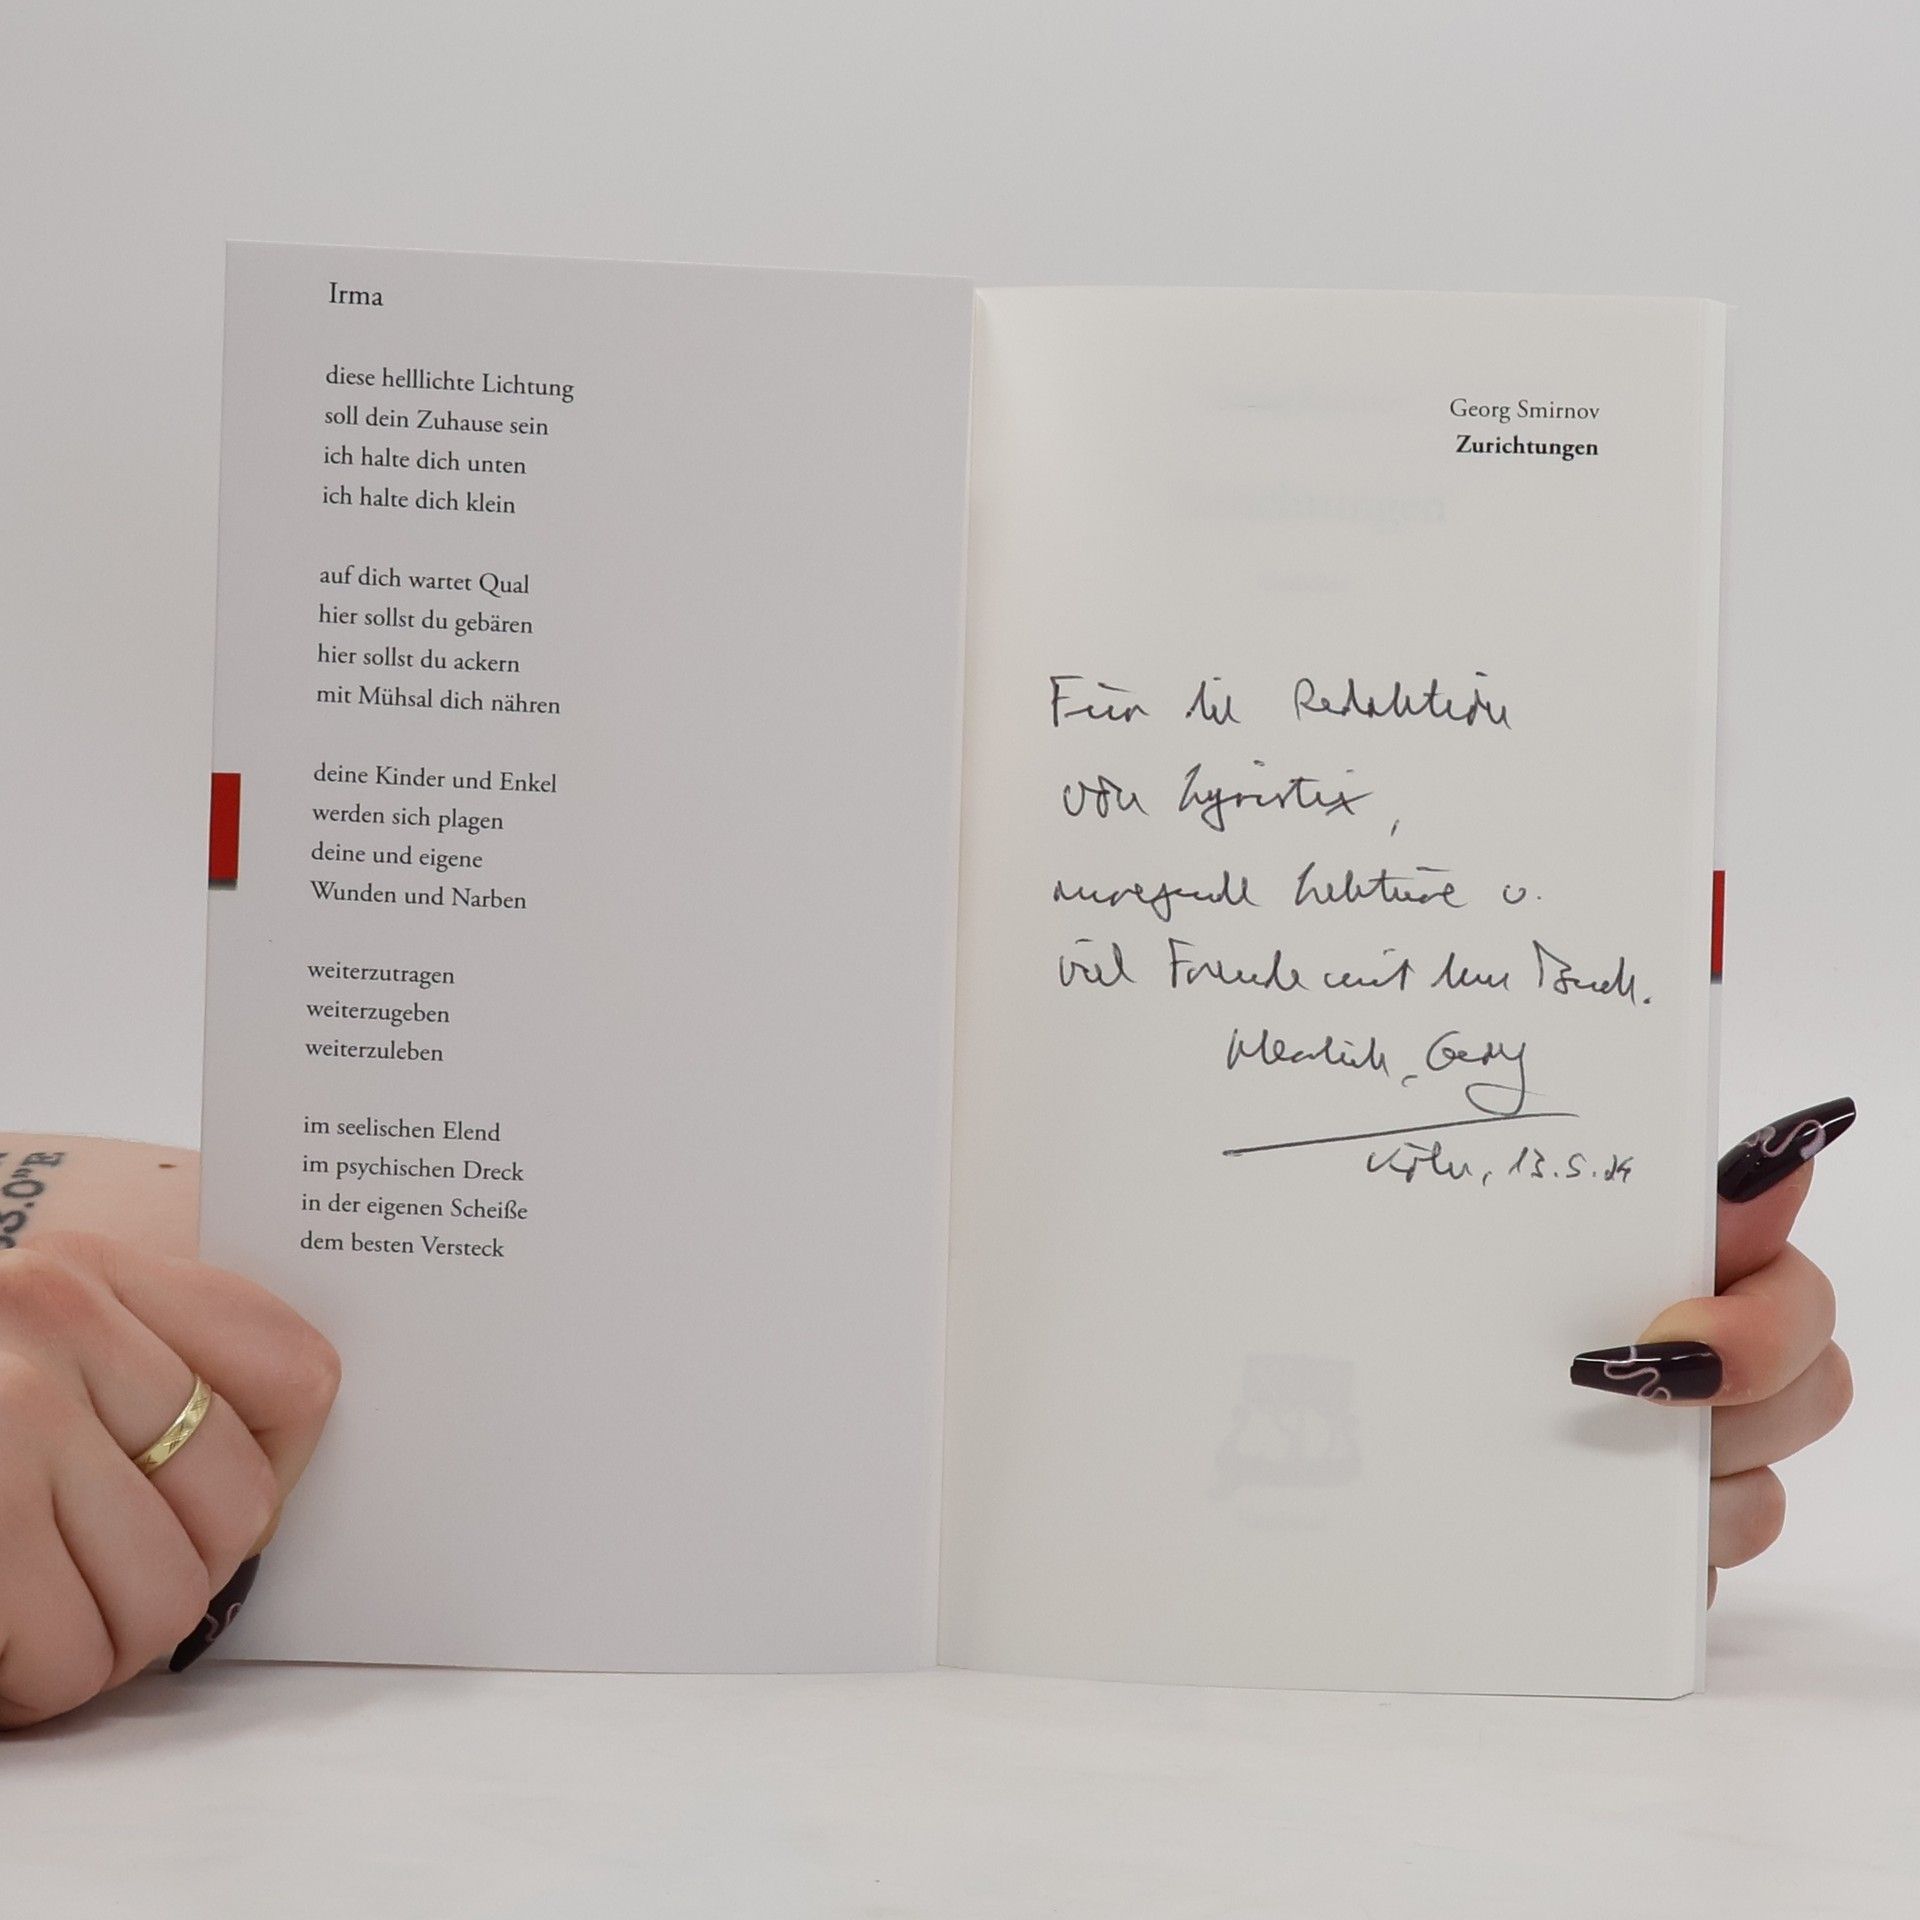 Irma
diese helllichte Lichtung
soll dein Zuhause sein
ich halte dich unten
ich halte dich klein
auf dich wartet Qual
hier sollst du gebären
hier sollst du ackern
mit Mühsal dich nähren
deine Kinder und Enkel
werden sich plagen
deine und eigene
Wunden und Narben
weiterzutragen
weiterzugeben
weiterzuleben
im seelischen Elend
im psychischen Dreck
in der eigenen Scheiße
dem besten Versteck
Georg Smirnov
Zurichtungen
Für die Redaktion
von Lyristix,
anregende Lektüre u.
viel Freude mit dem Buch.
Herzlich, Georg
Köln, 13.5.24
3.0"E